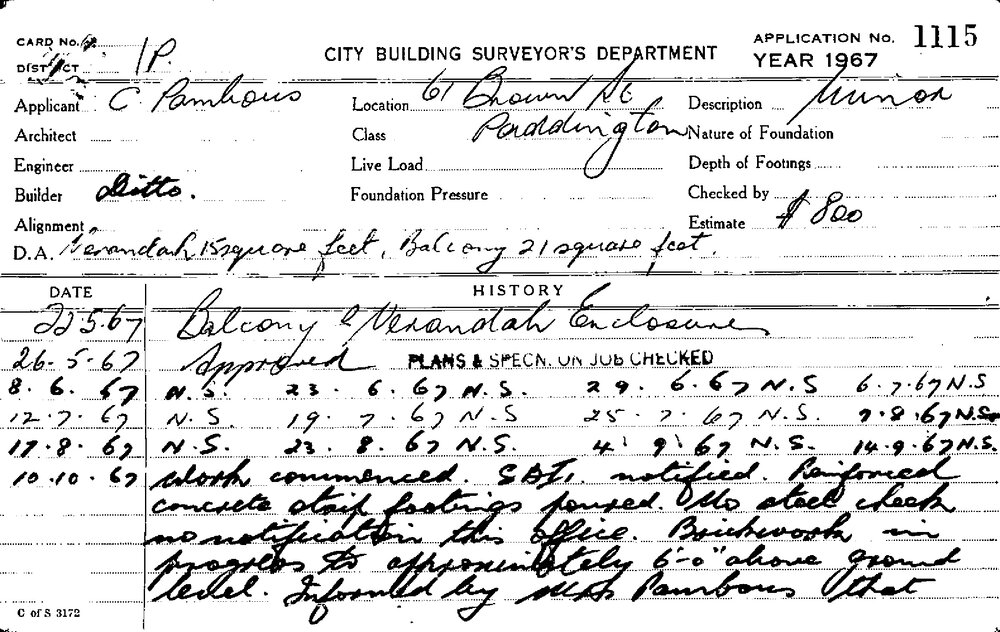 CARD No.
DISTRICT 1P.
CITY BUILDING SURVEYOR'S DEPARTMENT
APPLICATION No. 1115
YEAR 1967
Applicant C Pambous Location 61 Brown St Description Minor
Architect Class Paddington Nature of Foundation
Engineer Live Load Depth of Footings
Builder Ditto. Foundation Pressure Checked by
Alignment Estimate $ 800
D.A. Verandah 15 square feet, Balcony 21 square feet.
DATE HISTORY
22.5.67 Balcony & Verandah Enclosures
26.5.67 Approved PLANS & SPECN. ON JOB CHECKED
8.6.67 N.S. 23.6.67 N.S. 29.6.67 N.S 6.7.67 N.S
12.7.67 N.S. 19.7.67 N.S 25.7.67 N.S. 7.8.67 N.S.
17.8.67 N.S. 23.8.67 N.S. 4.9.67 N.S. 14.9.67 N.S.
10.10.67 Work commenced. notified. Reinforced
concrete strip footings poured. No steel check
no notification this office. Brickwork in
progress to approximately 6'-0" above ground
level. Informed by Mrs Pambous that
C of S 3172